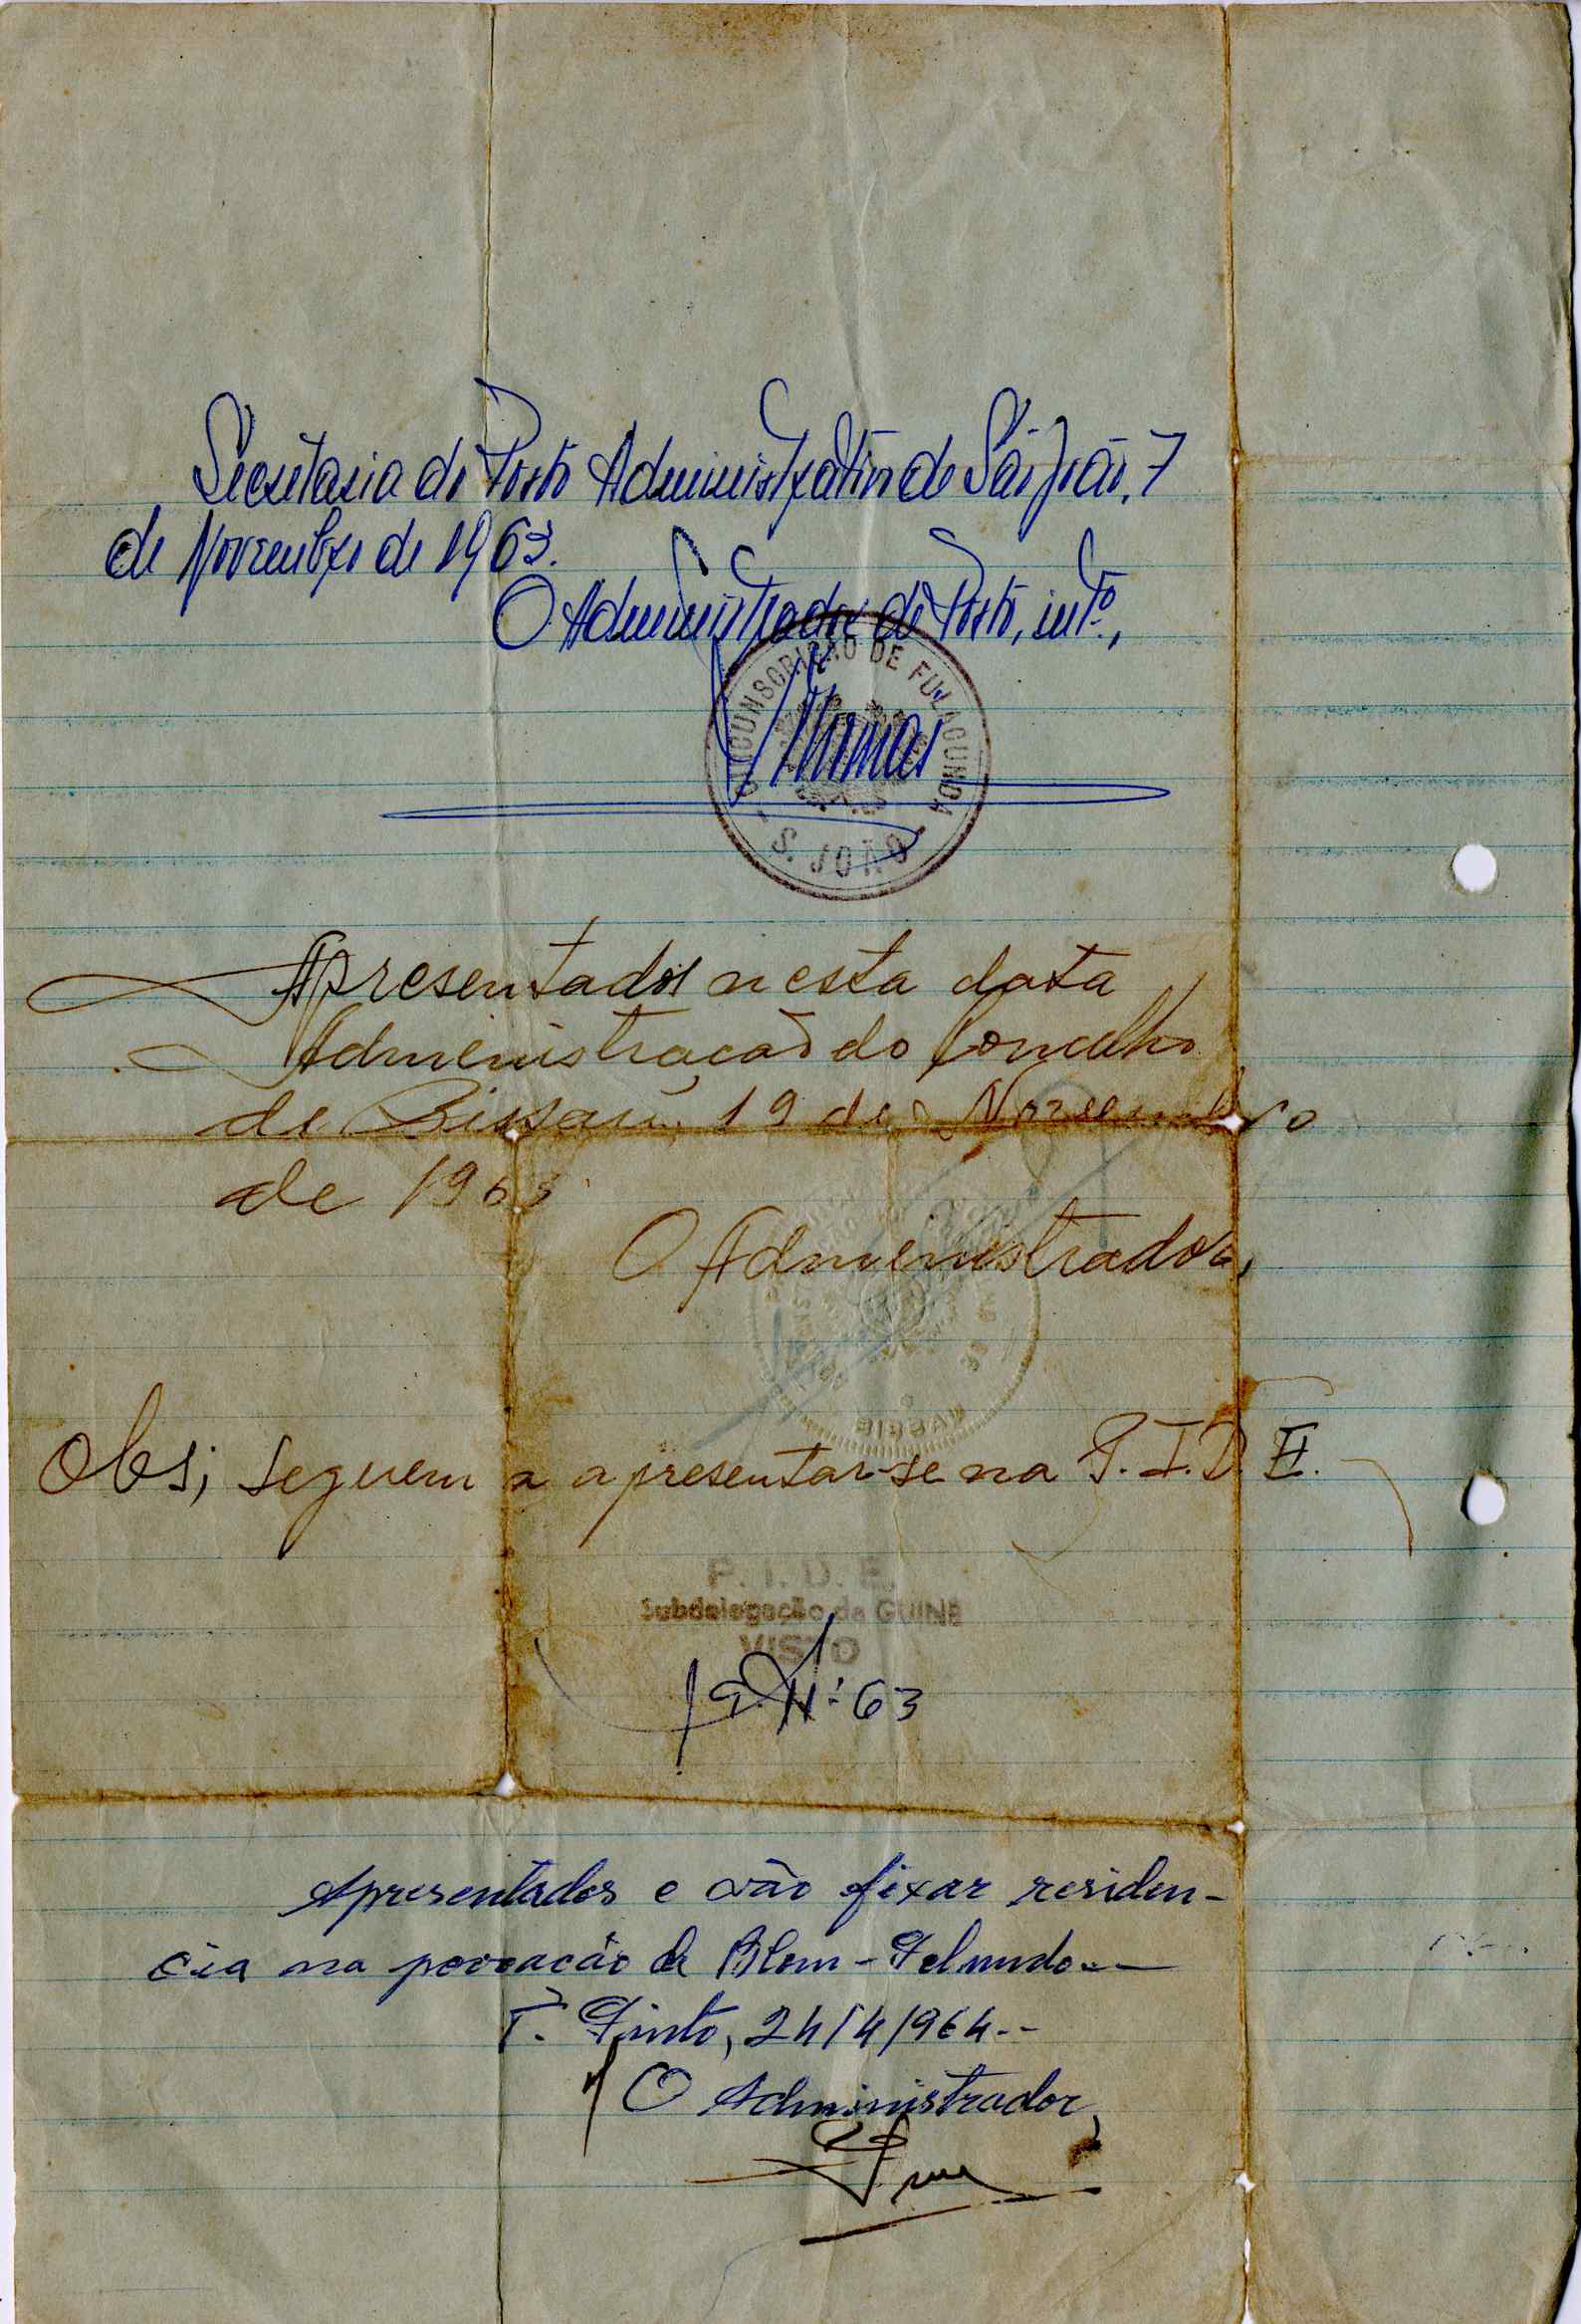 Secretaria do Posto Administrativo de São João, 7
de Novembro de 1963.
O Administrador do Posto, intº,
CIRCUNSCRIÇÃO DE FULACUNDA
S. JOÃO
Apresentados nesta data
Administração do Concelho
de Bissau, 19 de Novembro
de 1963
O Administrador,
BISSAU
Obs; seguem a apresentar-se na P.I.D.E.
P. I. D. E.
Subdelegação da GUINÉ
VISTO
19.11.63
Apresentados e vão fixar residen-
cia na povoação de Blom-Pelundo.--
T. Pinto, 24/4/964.--
O Administrador,